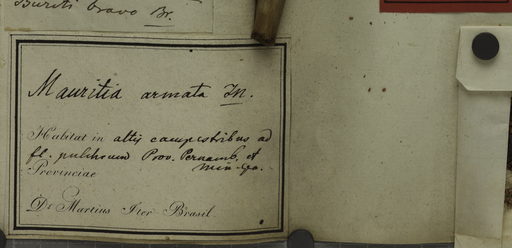 Buriti bravo Br.
Mauritia armata M.
Habitat in altis campestribus ad
fl. pulchrum Prov. Pernamb. et
Provinciae Min. Ger.
Dr Martius Iter Brasil